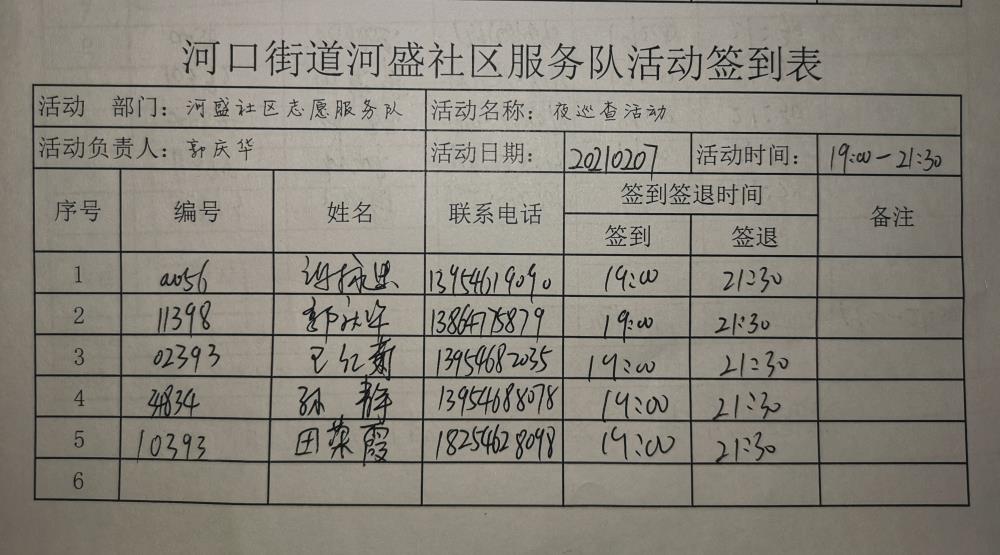 河口街道河盛社区服务队活动签到表
活动 部门：河盛社区志愿服务队 活动名称：夜巡查活动
活动负责人：郭庆华 活动日期：20210207 活动时间：19:00-21:30
序号 编号 姓名 联系电话 签到签退时间 备注
签到 签退
1 13954619090 19:00 21:30
2 11398 郭庆华 13864775879 19:00 21:30
3 02393 13954682035 19:00 21:30
4 34834 孙静 13954688078 19:00 21:30
5 10393 田荣霞 18254628098 19:00 21:30
6